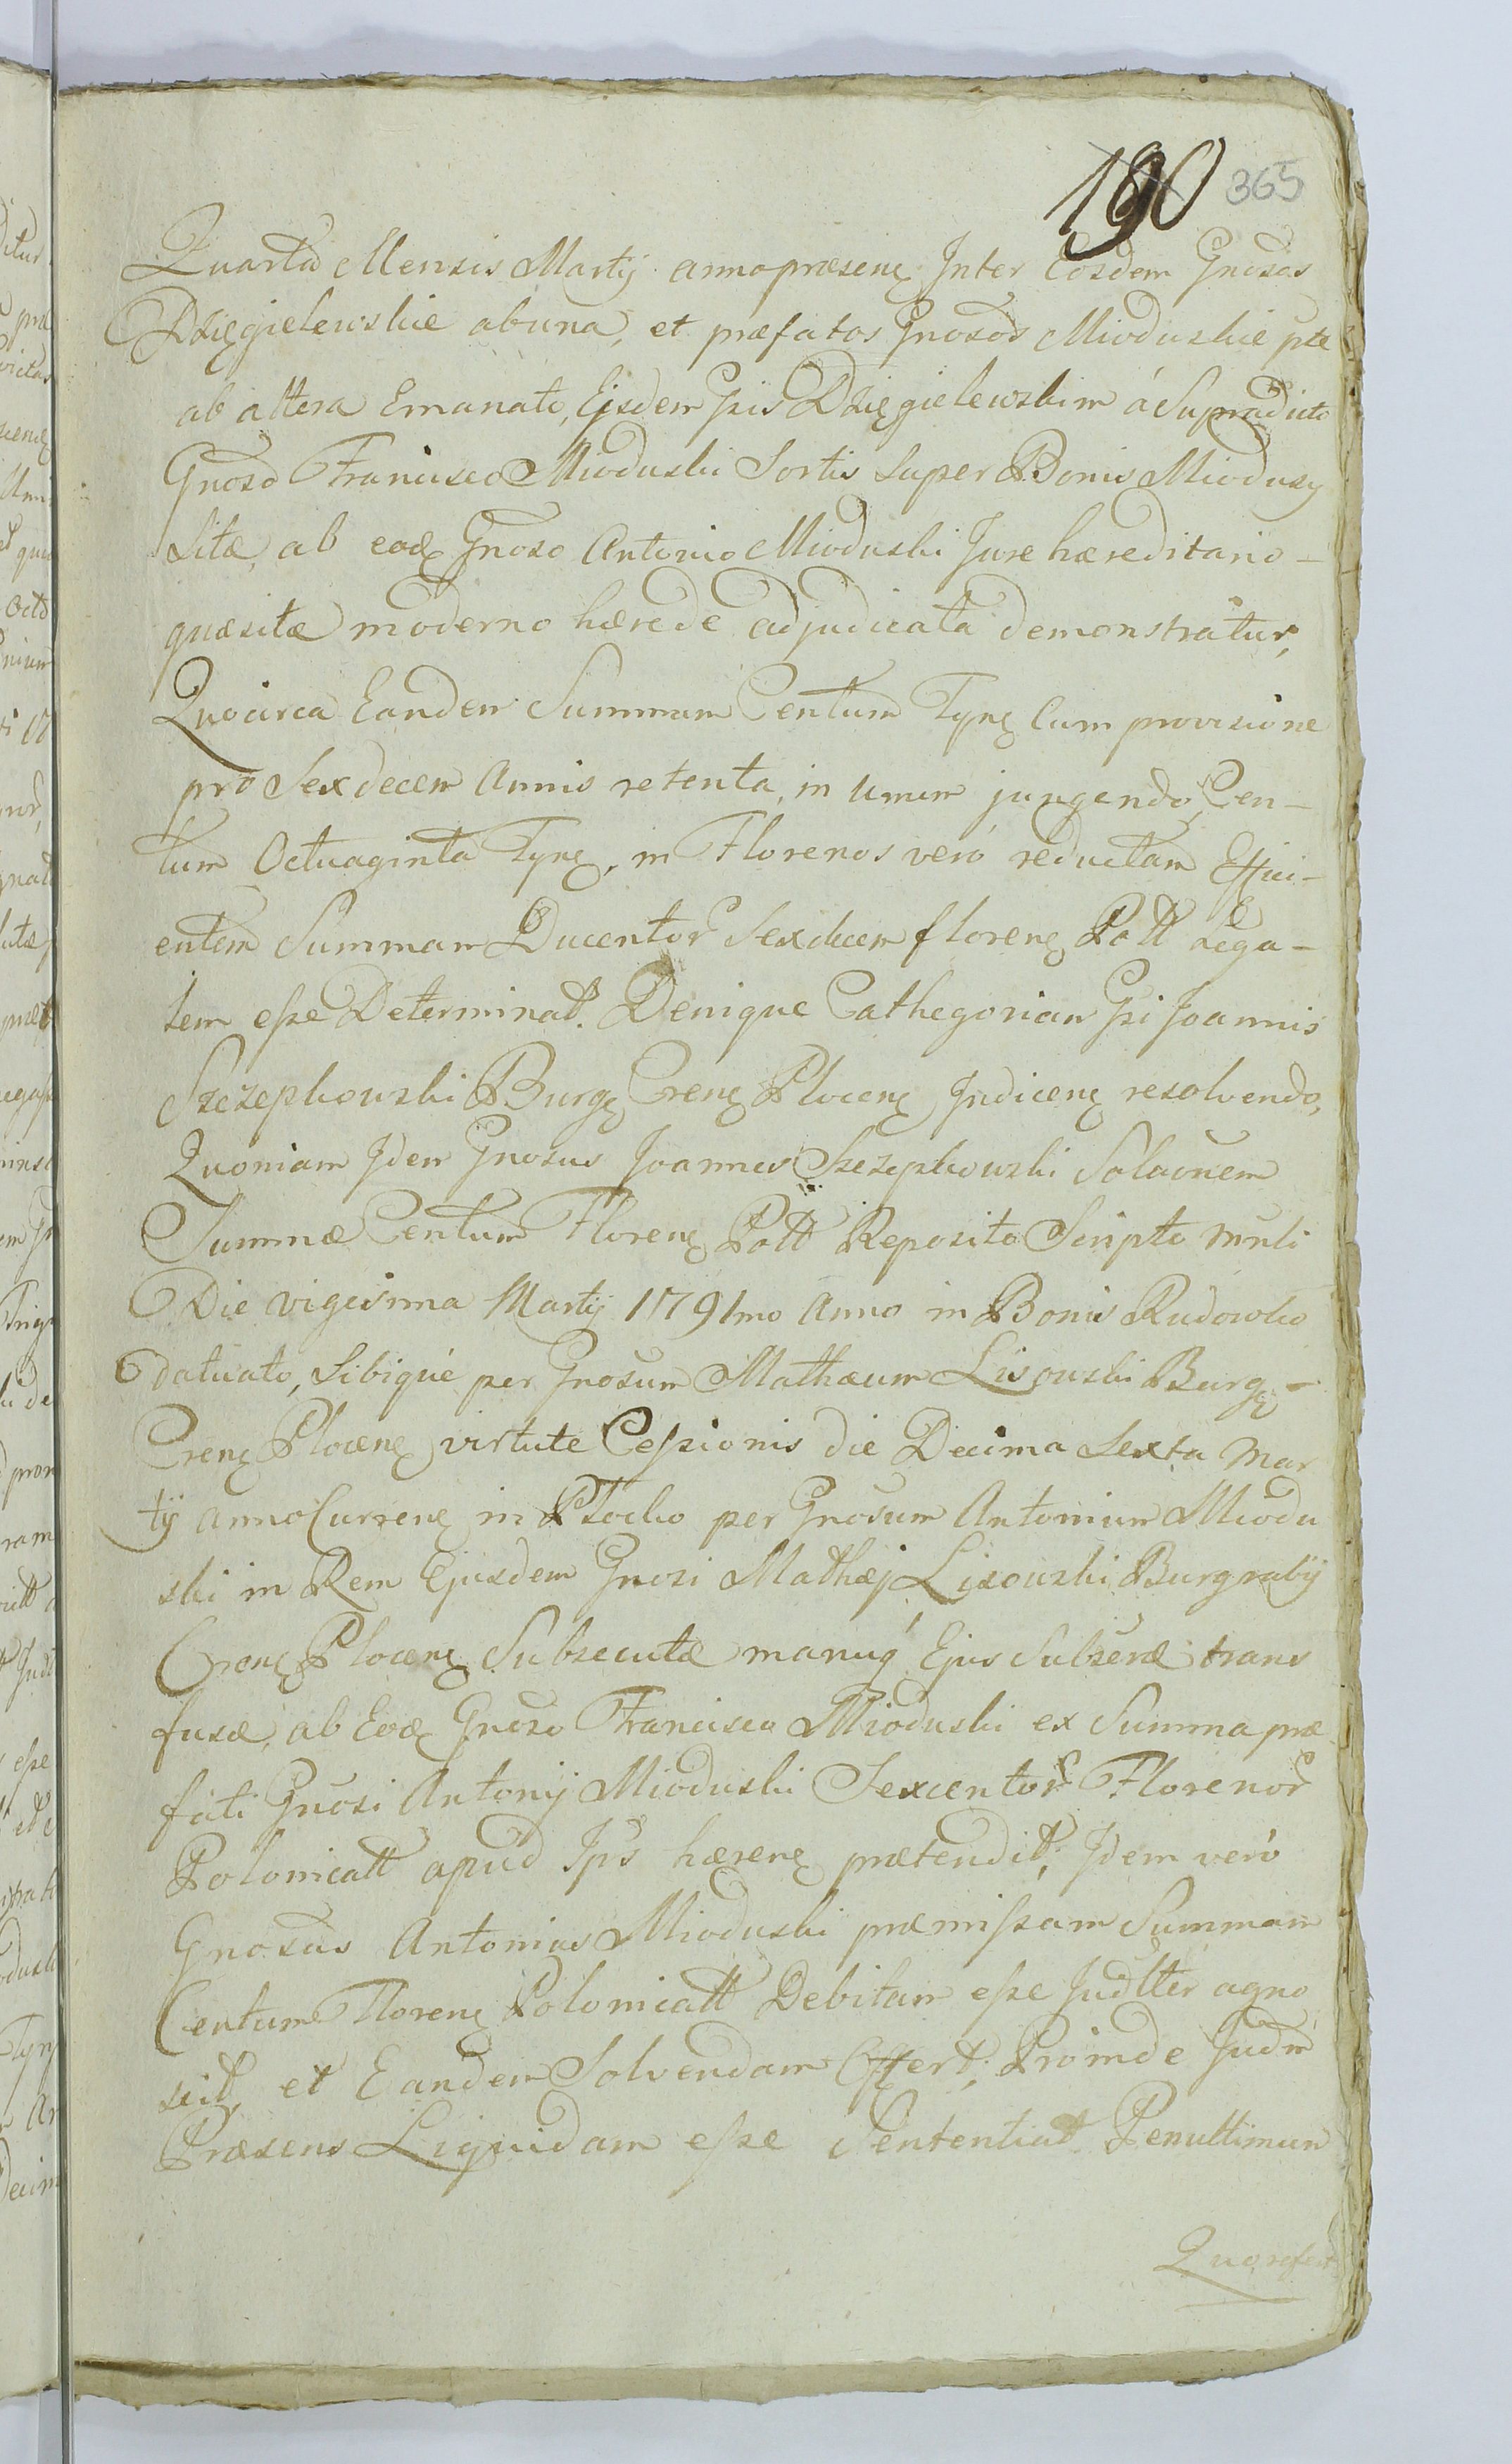 190 365
Quarta Mensis Martij anno præsenę Inter Eosdem Gnosos
Dzięgielewskie ab una, et præfatos Gnosos Mioduskie pte
ab altera Emanato, Ejsdem Gsis Dzięgielewskim á Supradicto
Gnoso Francisco Mioduski Sortis super Bonis Miodusy
Sitæ, ab eodę Gnoso Antonio Mioduski Jure hæreditario -
quæsitæ moderno hærede adjudicata demonstratur,
Quocirca Eandem Summam Centum Tynę cum provisione
pro Sexdecem Annis retenta, in unum jungendo, Cen-
tum Octuaginta Tynę, in Florenos veró reductam Effici-
entem Summam Ducentor Sexdecem florenę Poll Lega-
lem eſse Determinat. Denique Cathegoriam Gsi Joannis
Szczepkowski Burgę Crenę Plocenę Judicenę resolvendo,
Quoniam Idem Gnosus Joannes Szczepkowski Solaonem
Summæ Centum Florenę Poll Reposito Scripto mnli
Die vigesima Martij 1791mo Anno in Bonis Rudowko
datuato, Sibiqué per Gnosum Mathæum Lisowski Burgę -
Crenę Plocenę virtute Ceſsionis die Decima Sexta Mar
tij anno Currenę in Plocko per Gnosum Antonium Miodu
ski in Rem Ejusdem Gnosi Mathæj Lisowski Burgrabij
Crenę Plocenę Subsecutæ manuq́ Ejus Subseræ trans
fusæ, ab Eodę Gnoso Francisco Mioduski ex Summa præ
fati Gnosi Antonij Mioduski Sexcentor Florenor
Polonicall apud Ips hærenę prætendit, Idem veró
Gnosus Antonius Mioduski præmiſsam Summam
Centum Florenę Polonicall Debitam eſse Judlter agno
scit, et Eandem Solvendam Offert; Proinde Judm
Præsens Liquidam eſse Sententiat. Penultimum